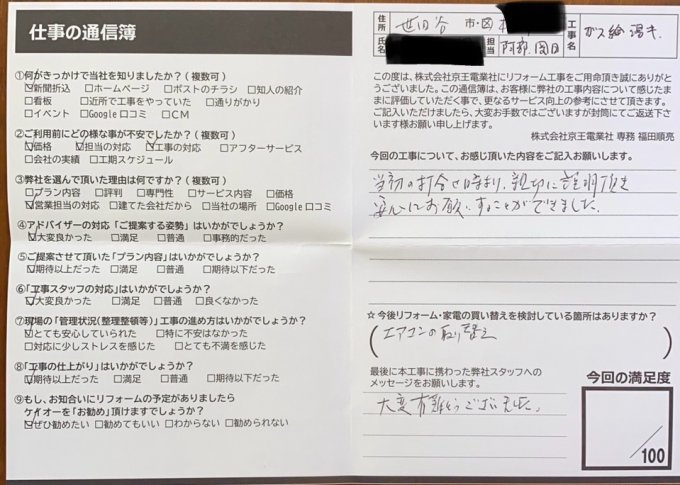 仕事の通信簿
①何がきっかけで当社を知りましたか？(複数可)
☑新聞折込 □ホームページ □ポストのチラシ □知人の紹介
□看板 □近所で工事をやっていた □通りがかり
□イベント □Google口コミ □CM
②ご利用前にどの様な事が不安でしたか？(複数可)
☑価格 ☑担当の対応 ☑工事の対応 □アフターサービス
□会社の実績 □工期スケジュール
③弊社を選んで頂いた理由は何ですか？(複数可)
□プラン内容 □評判 □専門性 □サービス内容 □価格
☑営業担当の対応 □建てた会社だから □当社の場所 □Google口コミ
④アドバイザーの対応「ご提案する姿勢」はいかがでしょうか？
☑大変良かった □満足 □普通 □事務的だった
⑤ご提案させて頂いた「プラン内容」はいかがでしょうか？
☑期待以上だった □満足 □普通 □期待以下だった
⑥「工事スタッフの対応」はいかがでしょうか？
☑大変良かった □満足 □普通 □良くなかった
⑦現場の「管理状況(整理整頓等)」工事の進め方はいかがでしょうか？
☑とても安心していられた □特に不安はなかった
□対応に少しストレスを感じた □とても不満を感じた
⑧「工事の仕上がり」はいかがでしょうか？
☑期待以上だった □満足 □普通 □期待以下だった
⑨もし、お知合いにリフォームの予定がありましたら
ケイオーを「お勧め」頂けますでしょうか？
☑ぜひ勧めたい □勧めてもいい □わからない □勧められない
住所 世田谷 市・区
氏名 担当 阿部、岡田
工事名 ガス給湯器
この度は、株式会社京王電業社にリフォーム工事をご用命頂き誠にありがと
うございました。この通信簿は、お客様に弊社の工事内容について感じたま
まに評価していただく事で、更なるサービス向上の参考にさせて頂きます。
ご記入いただけましたら、大変お手数ではございますが封筒にてご返送下さ
います様お願い申し上げます。
株式会社京王電業社 専務 福田順亮
今回の工事について、お感じ頂いた内容をご記入お願いします。
当初の打合せ時より、親切に説明頂き
安心にお願いすることができました。
☆今後リフォーム・家電の買い替えを検討している箇所はありますか？
(エアコンの取り替え)
最後に本工事に携わった弊社スタッフへの
メッセージをお願いします。
大変有難うございました。
今回の満足度
/100